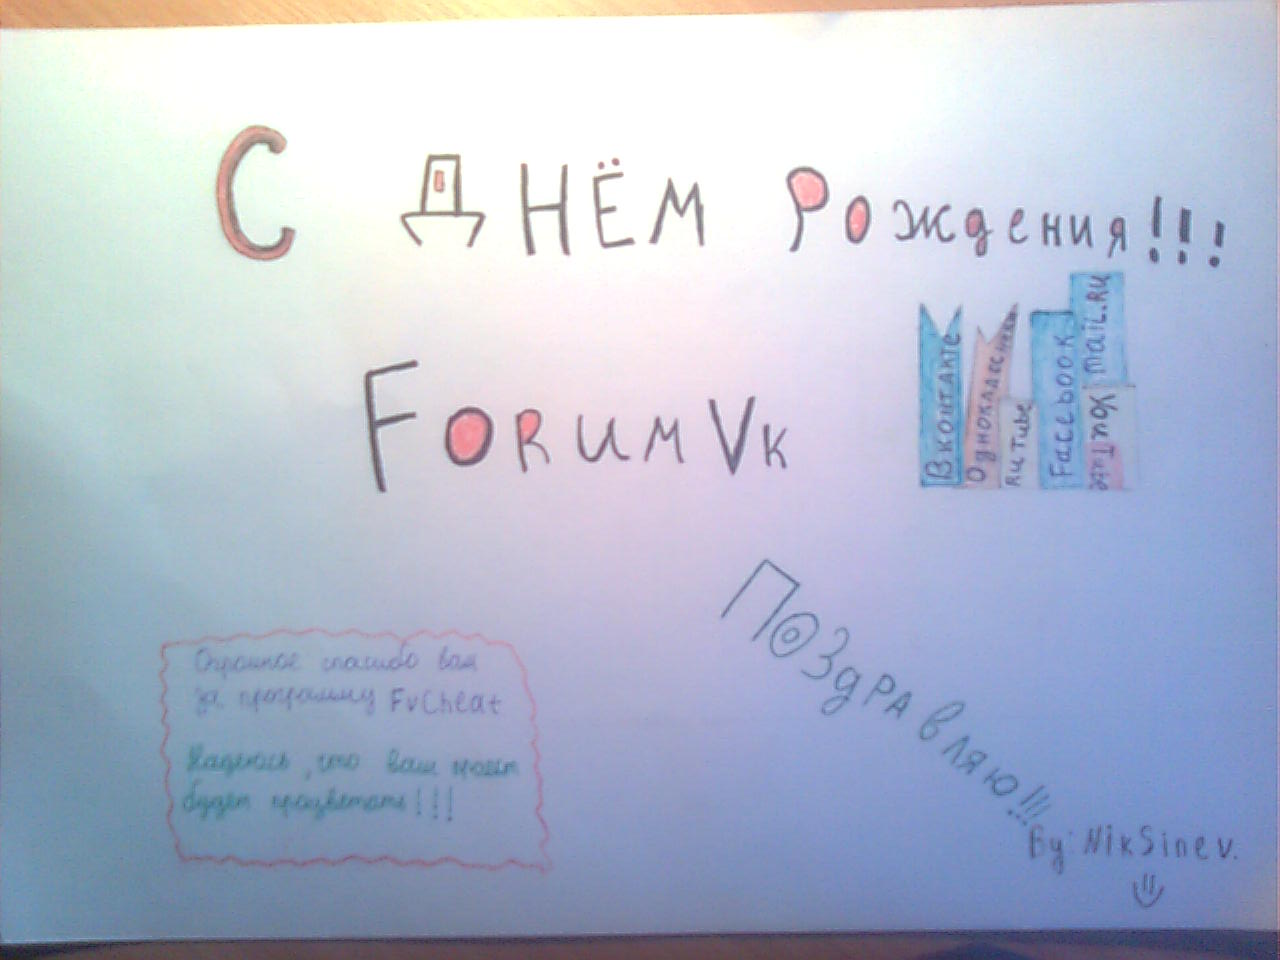 С Днём Рождения!!!
ForumVk
Вконтакте
Одноклассники
RuTube
Facebook
mail.RU
YouTube
Поздравляю!!!
Огромное спасибо вам
за программу FvCheat
Надеюсь, что ваш проект
будет процветать!!!
By: NikSinev.